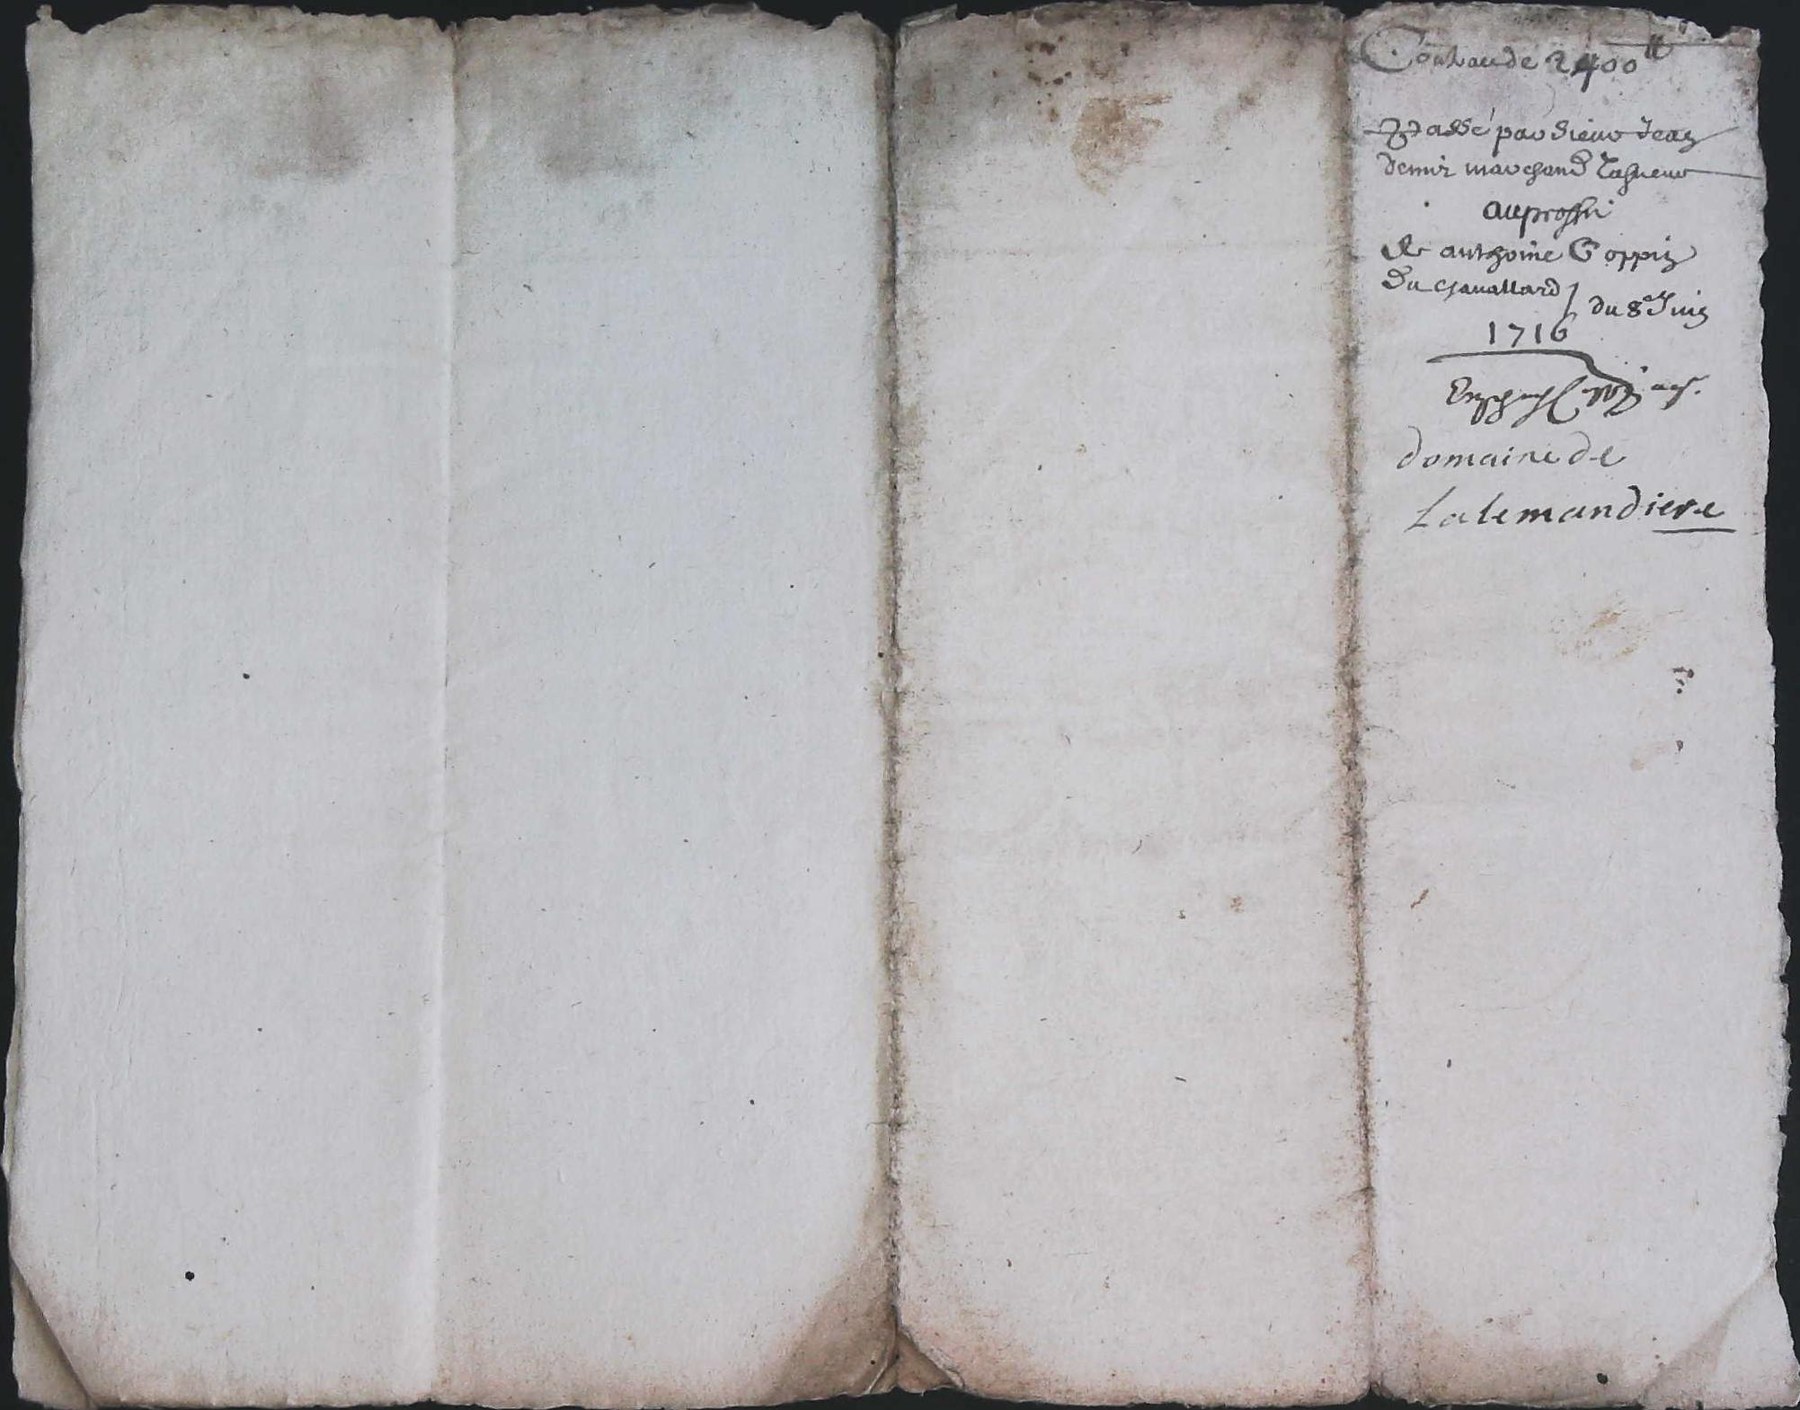 Contrat de 2400 ll
Passé par sieur Jean
demir marchand
au proffit
de anthoine Coppin
du chavallard du 8e Juin
1716
domaine de
Lalemandiere